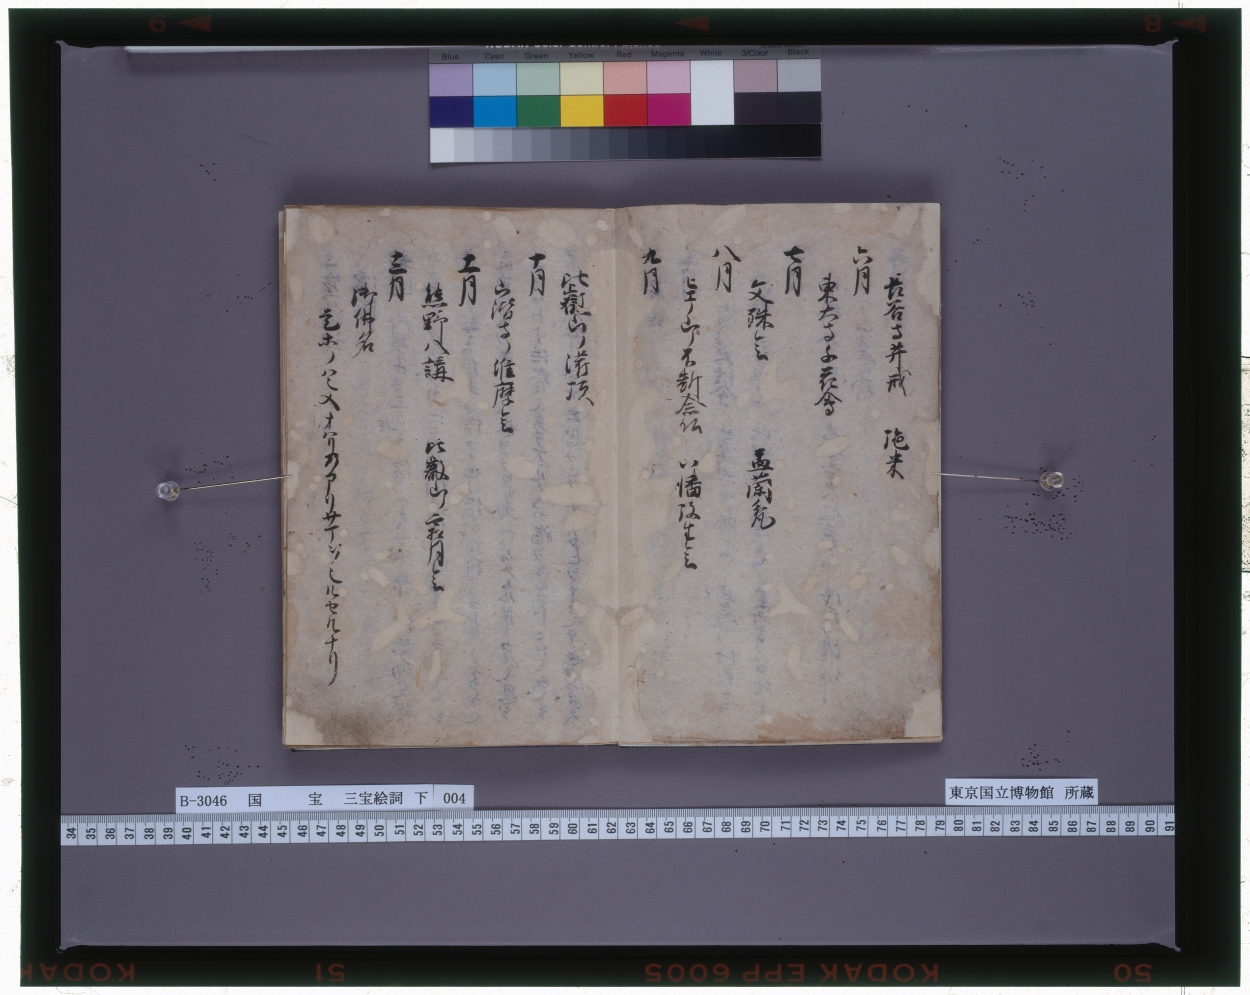 長谷寺井戒　施米
六月
東大寺千花會
七月
文殊会　盂蘭瓫
八月
比エノ山不断念仏　八幡放生会
九月
比叡山ノ灌頂
十月
山階寺ノ維摩会
十一月
熊野八講　比叡山ノ霜月会
十二月
御佛名
Blue Cyan Green Yellow Red Magenta White 3/Color Black
B-3046 国 宝 三宝絵詞 下 004
東京国立博物館 所蔵
34 35 36 37 38 39 40 41 42 43 44 45 46 47 48 49 50 51 52 53 54 55 56 57 58 59 60 61 62 63 64 65 66 67 68 69 70 71 72 73 74 75 76 77 78 79 80 81 82 83 84 85 86 87 88 89 90 91
KODAK 51 KODAK EPP 6005 50